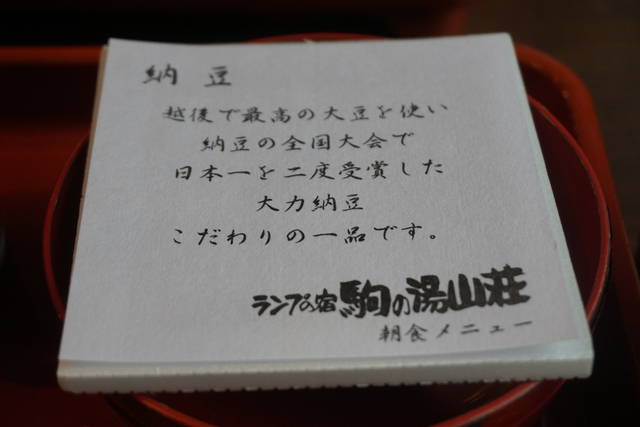 納豆
越後で最高の大豆を使い
納豆の全国大会で
日本一を二度受賞した
大力納豆
こだわりの一品です。
ランプの宿駒の湯山荘
朝食メニュー